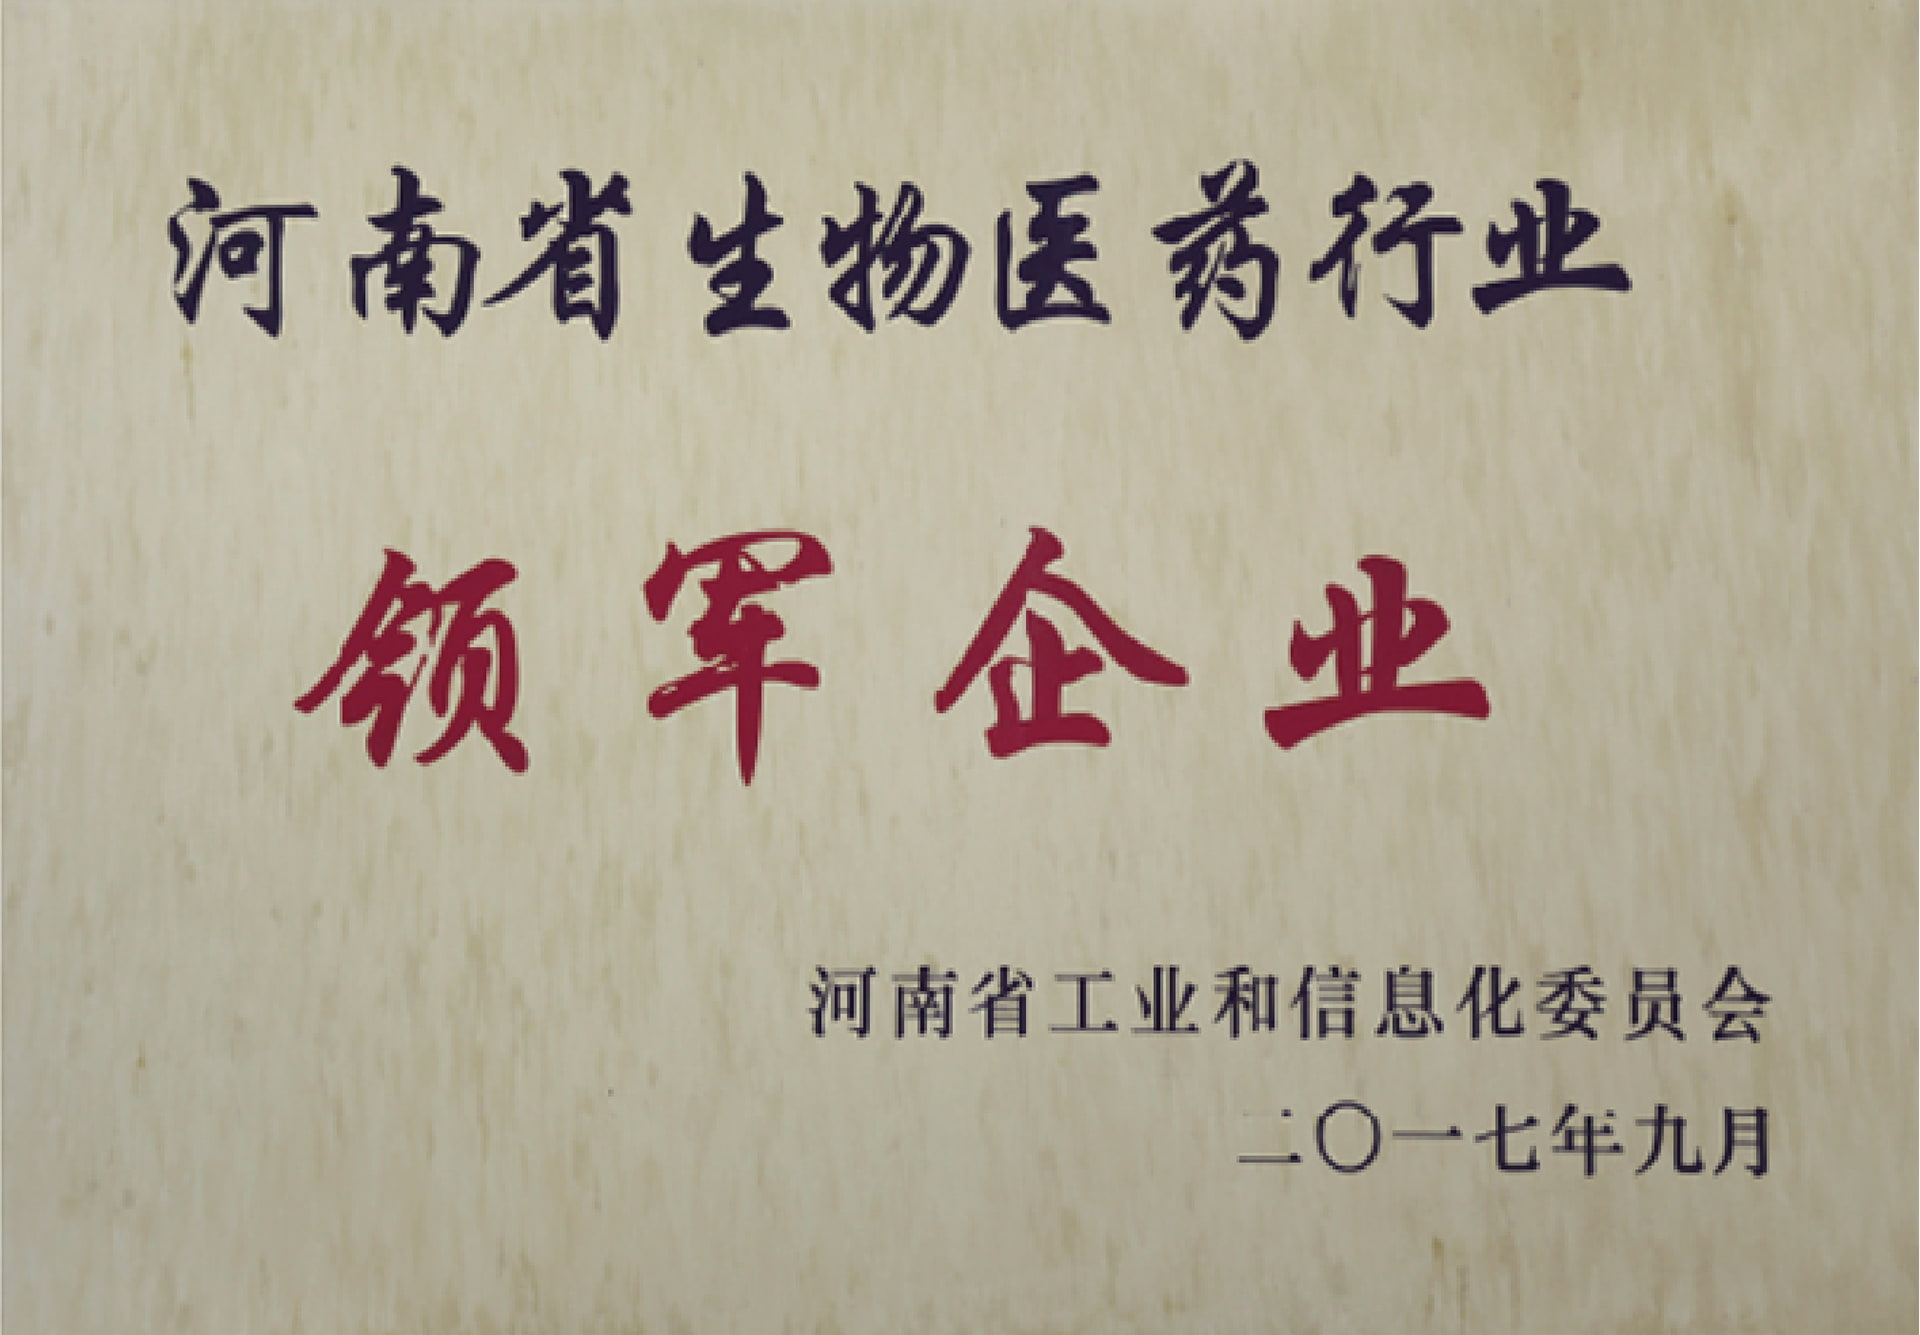 河南省生物医药行业
领军企业
河南省工业和信息化委员会
二〇一七年九月